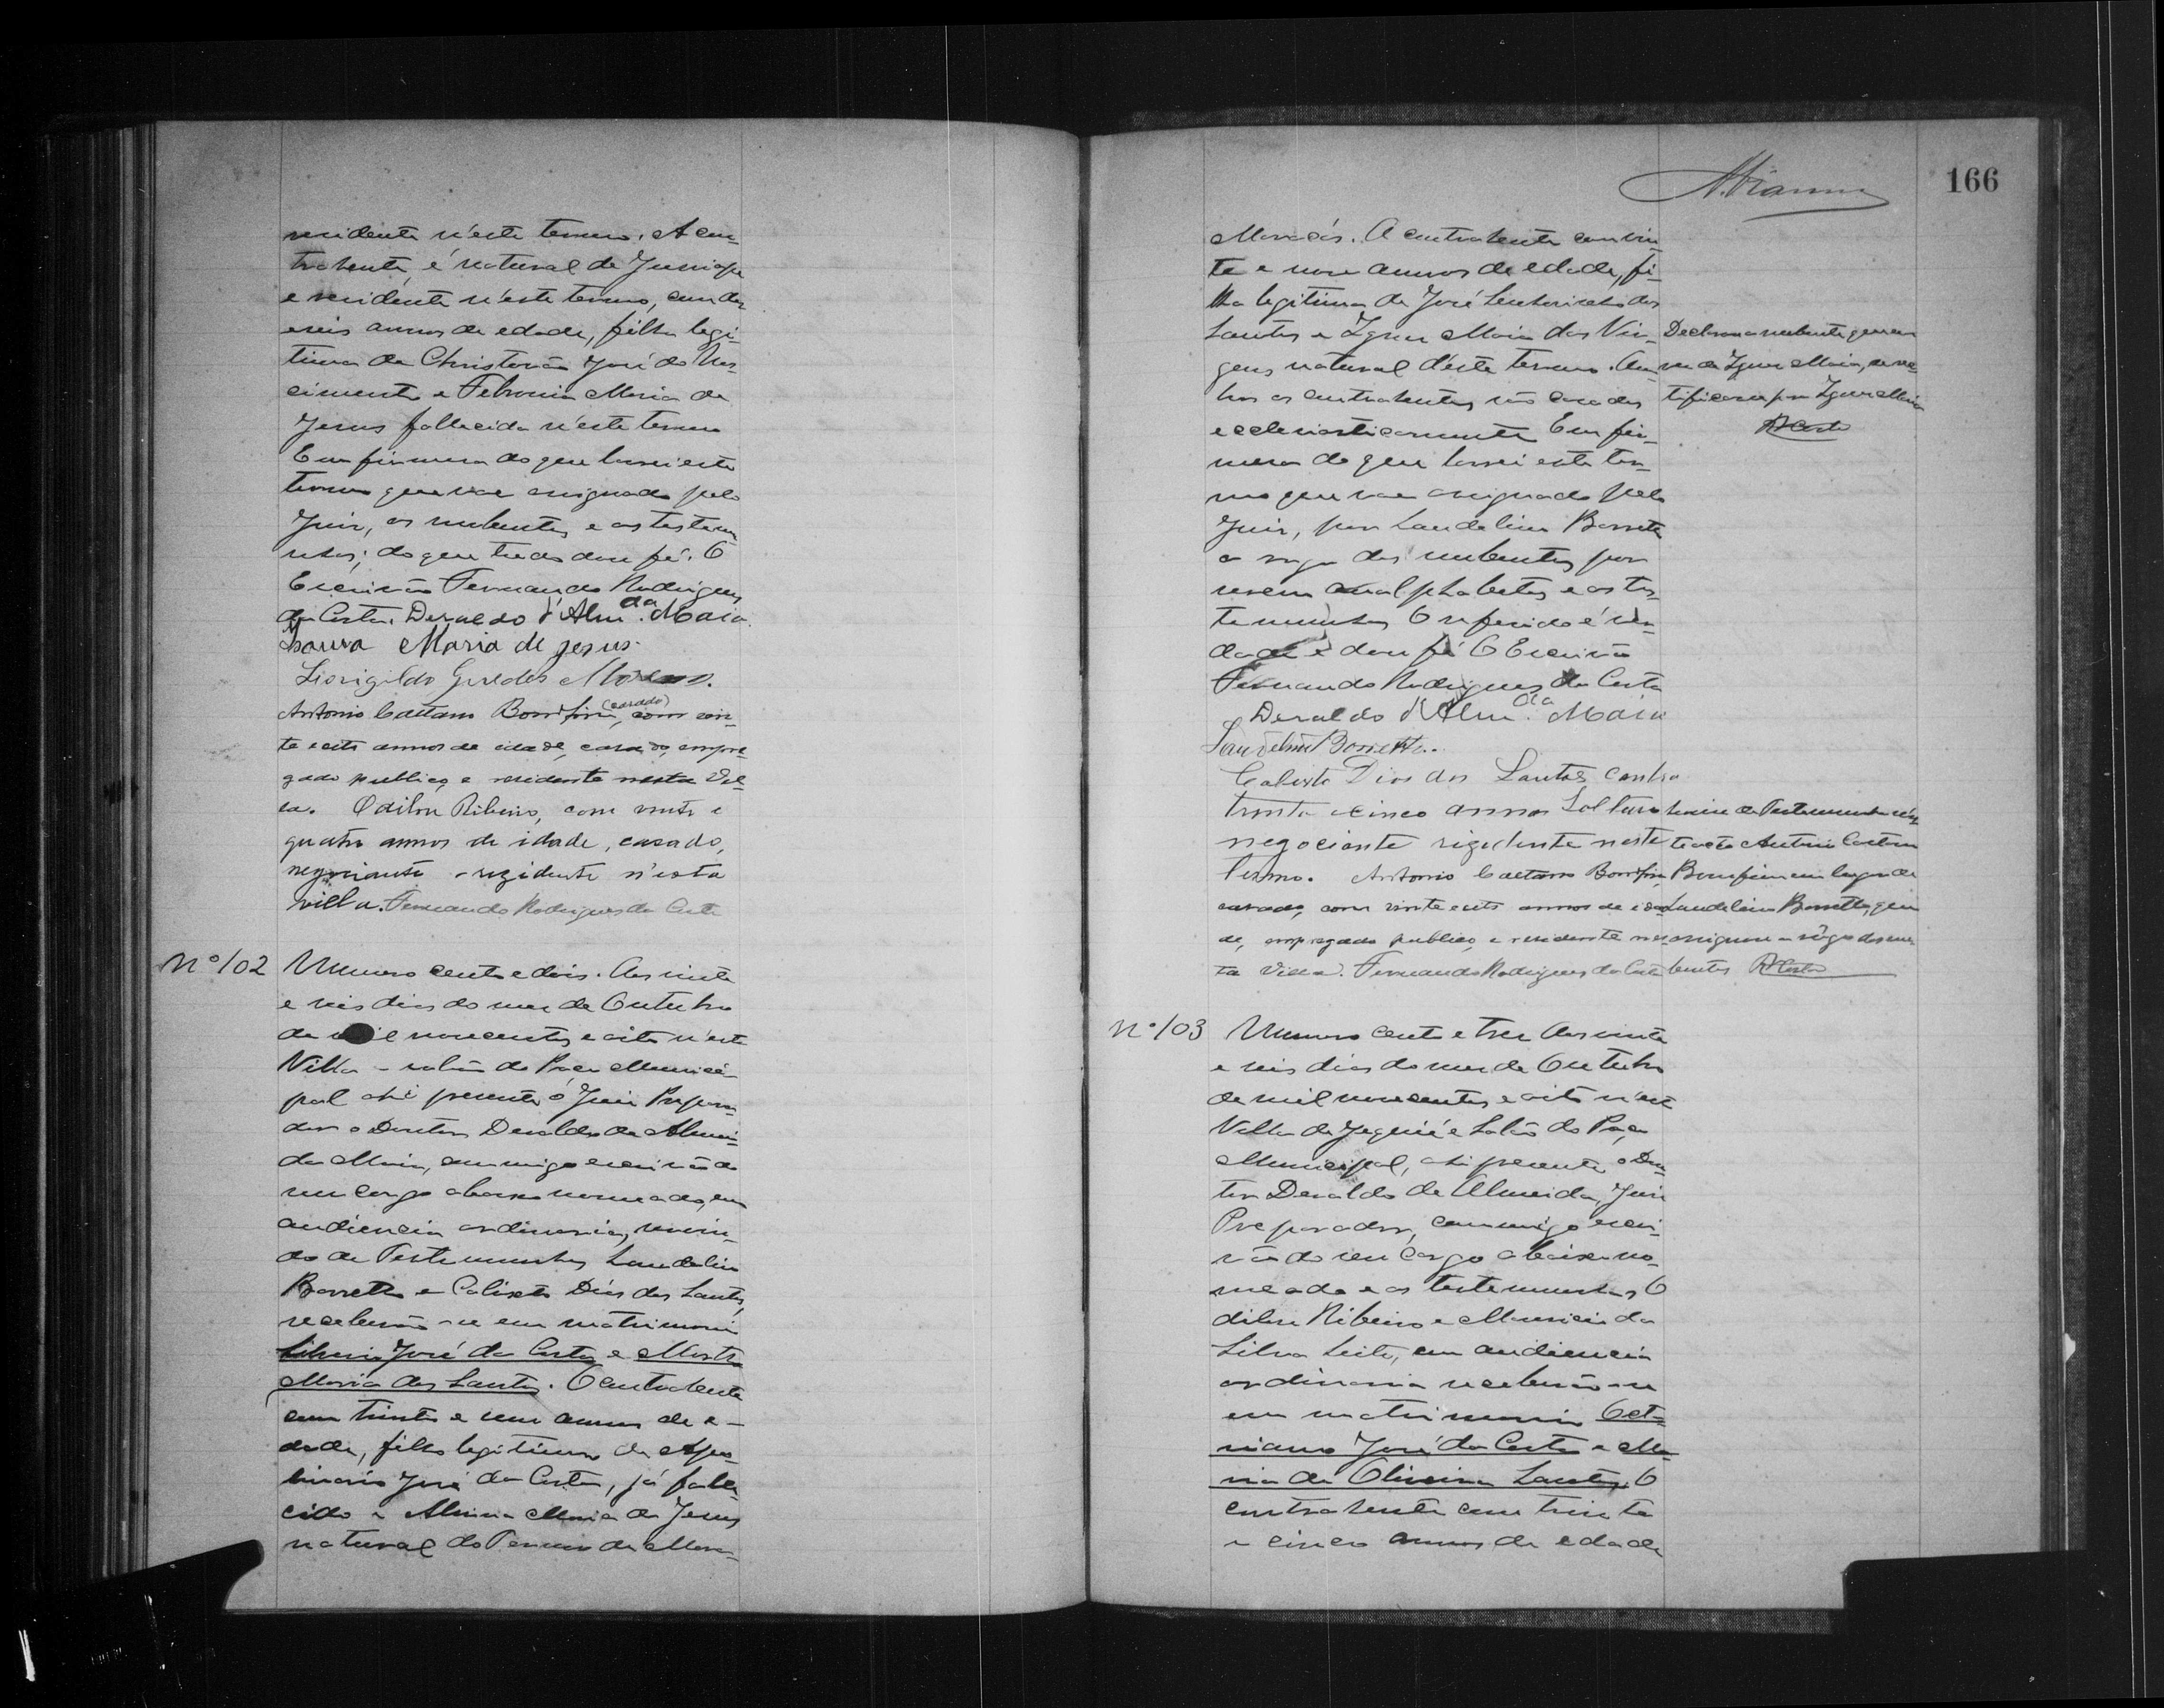 residente n'este termo. A con-
trahente, é natural de Jussiape
e residente n'este termo, com des-
eseis annos de edade, filha legi-
tima de Christovão José do Nas-
cimento e Febronia Maria de
Jesus fallecida n'este termo
Em firmesa do que lavrei este
termo que vae assignado pelo
Juiz, os nubentes, e as testemu-
nhas; do que tudo dou fé. O
Escrivão Fernando Rodrigues
da Costa. Deraldo d'Almda. Maia.
Maria de Jesus.
Liorigildo Guedes
Antonio Caetano Bomfim, (casado) com vin-
te e oito annos de idade, casado, empre-
gado publico, e residente nesta Vil-
la. Odilon Ribeiro, com vinte e
quatro annos de idade, casado,
negociante e rezidente n'esta
villa. Fernando Rodrigues da Costa
Nº 102 Numero cento e dois. Aos vinte
e seis dias do mez de Outubro
de mil novecentos e oito n'esta
Villa e salão do Paço Munici-
pal ahi presente o Juiz Prepara-
dor o Doutor Deraldo de Almei-
da Maia, commigo escrivão de
seu cargo abaixo nomeado, em
audiencia ordinaria, servin-
do de Testemunhas Laudelino
Barretto e Calixto Dias dos Santos,
receberão-se em matrimonio
Liberio José da Costa e Martha
Maria dos Santos. O contrahente
com trinta e um annos de e-
dade, filho legitimo de Apo-
linario José da Costa, já falle-
cido e Maria de Jesus
natural do Termo de Mara-
166
Maracás. A contrahente com vin-
te e nove annos de edade, fi-
lha legitima de José dos
Santos e Ignez Maria das Vir-
gens natural d'este termo. Am-
bos os contrahentes são casados
ecclesiasticamente Em fir-
mesa do que lavrei este ter-
mo que vae assignado pelo
Juiz, por Laudelino Barretto
a rogo dos nubentes por
serem analphabetos e as tes-
temunhas O referido é ver-
dade e dou fé O Escrivão
Fernando Rodrigues da Costa
Deraldo d'Almda. Maia
Laudelino Barretto.
Calixto Dias dos Santos com
trinta e cinco annos Solteiro
negociante rizidente neste
termo. Antonio Caetano Bomfim,
casado, com vinte e oito annos de ida-
de, empregado publico, e residente nes-
ta Villa. Fernando Rodrigues da Costa
Declarou a nubente que em
vez de Ignez Maria, se re-
tificasse por Ignez Maria
RCosta
de Testemunha n'es-
te acto Antonio Caetano
Bomfim em logar de
Laudelino Barretto, que
assignou a rôgo dos nu-
bentes RCosta
Nº 103 Numero cento e tres Aos vinte
e seis dias do mez de Outubro
de mil novecentos e oito n'esta
Villa de Jequié e Salão do Paço
Municipal, ahi presente o Dou-
tor Deraldo de Almeida, Juiz
Preparador, commigo escri-
vão do seu cargo abaixo no-
meado e as testemunhas O
dilon Ribeiro e Mauricio da
Silva Leite, em audiencia
ordinaria receberão-se
em matrimonio Octa-
viano José da Costa e Ma-
ria de Oliveira Santos. O
contrahente com trinta
e cinco annos de edade